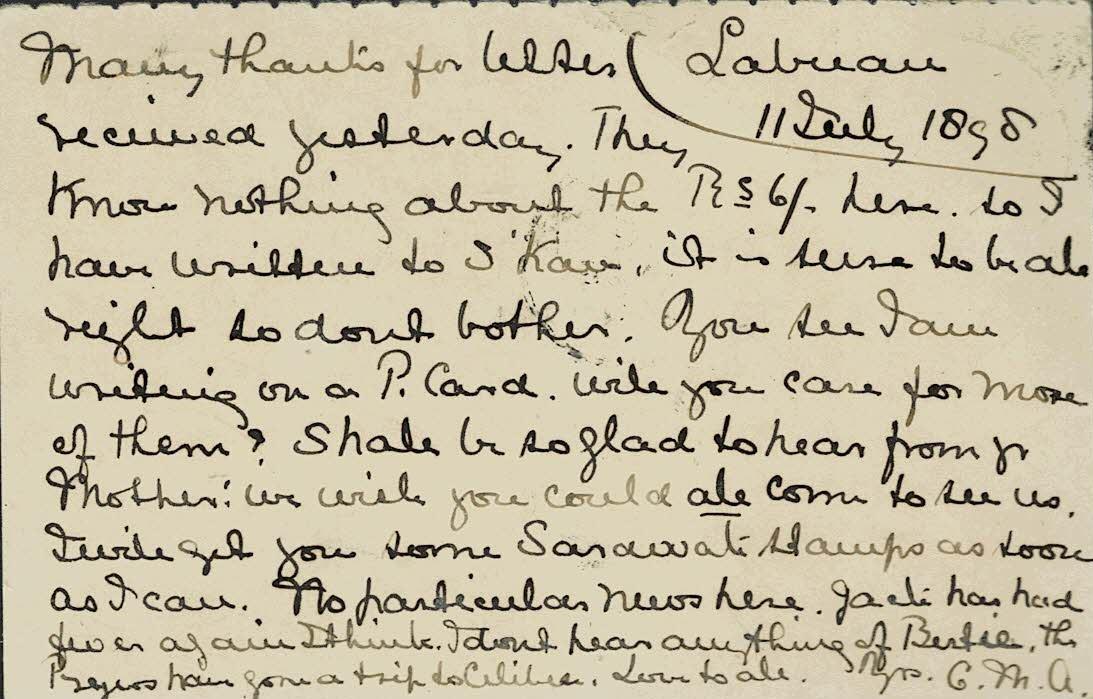 Many thanks for letter Labuan
received yesterday. They 11 July 1898
know nothing about the Rs 6/- here. so I
have written to S'Kan. it is sure to be all
right so dont bother. You see I am
writing on a P. Card. will you care for more
of them? Shall be so glad to hear from yr
Mother: we wish you could all come to see us.
I will get you some Sarawak stamps as soon
as I can. No particular news here. Jack has had
fever again I think. I dont hear anything of Bertie, the
Pryers have gone a trip to Celibes. Love to all. Yrs. C. M. A.